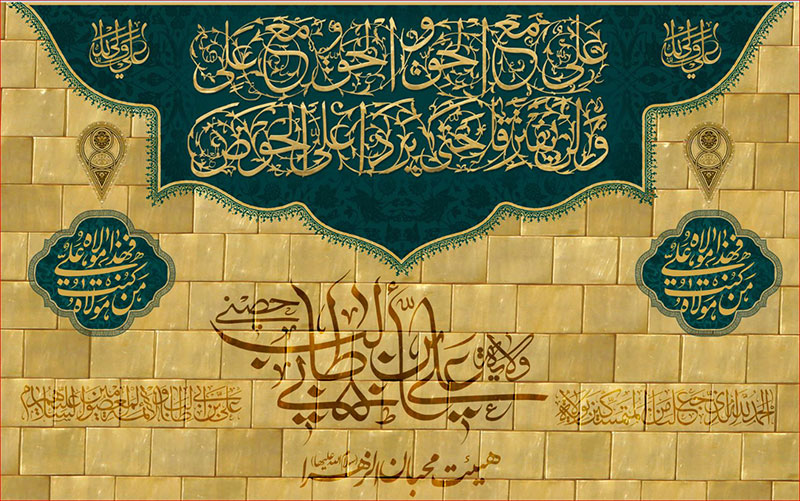 علی ولی الله
علی ولی الله
علی مع الحق و الحق مع علی
ولن یفترقا حتی یردا علی الحوض
من کنت مولاه فهذا علی مولاه
من کنت مولاه فهذا علی مولاه
ولایة علی بن أبی طالب حصنی
الحمدلله الذی جعلنا من المتمسکین بولایة
علی بن ابی طالب والائمة المعصومین علیهم السلام
هیئت محبان الزهرا (سلام الله علیها)